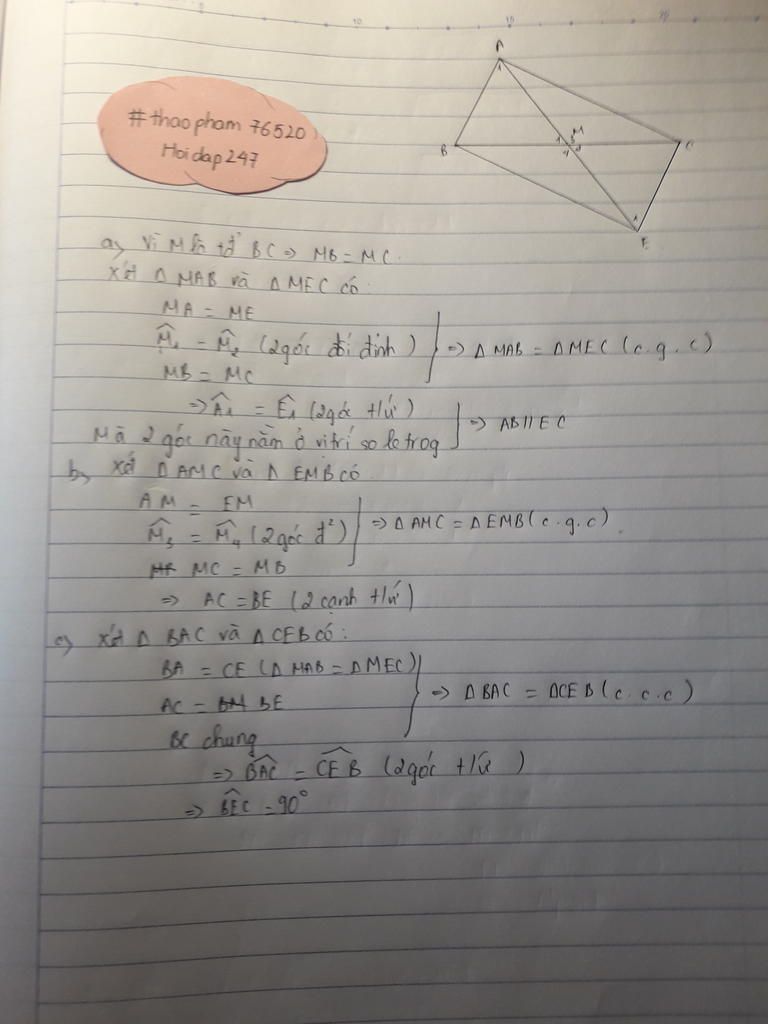 #thaopham 76520
Hoidap247
A
1
B
M
1
3
4
2
C
1
E
a, Vì M là tđ BC => MB = MC.
Xét Δ MAB và Δ MEC có:
MA = ME
M̂₁ = M̂₂ (2 góc đối đỉnh) => Δ MAB = Δ MEC (c.g.c)
MB = MC
=> Â₁ = Ê₁ (2 góc t/ứ)
Mà 2 góc này nằm ở vị trí so le trog => AB // EC
b, Xét Δ AMC và Δ EMB có
AM = EM
M̂₃ = M̂₄ (2 góc đ²) => Δ AMC = Δ EMB (c.g.c).
MC = MB
=> AC = BE (2 cạnh t/ứ)
c, Xét Δ BAC và Δ CEB có:
BA = CE (Δ MAB = Δ MEC)
AC = BE => Δ BAC = Δ CEB (c.c.c)
BC chung
=> BAC^ = CEB^ (2 góc t/ứ)
=> BEC^ = 90°